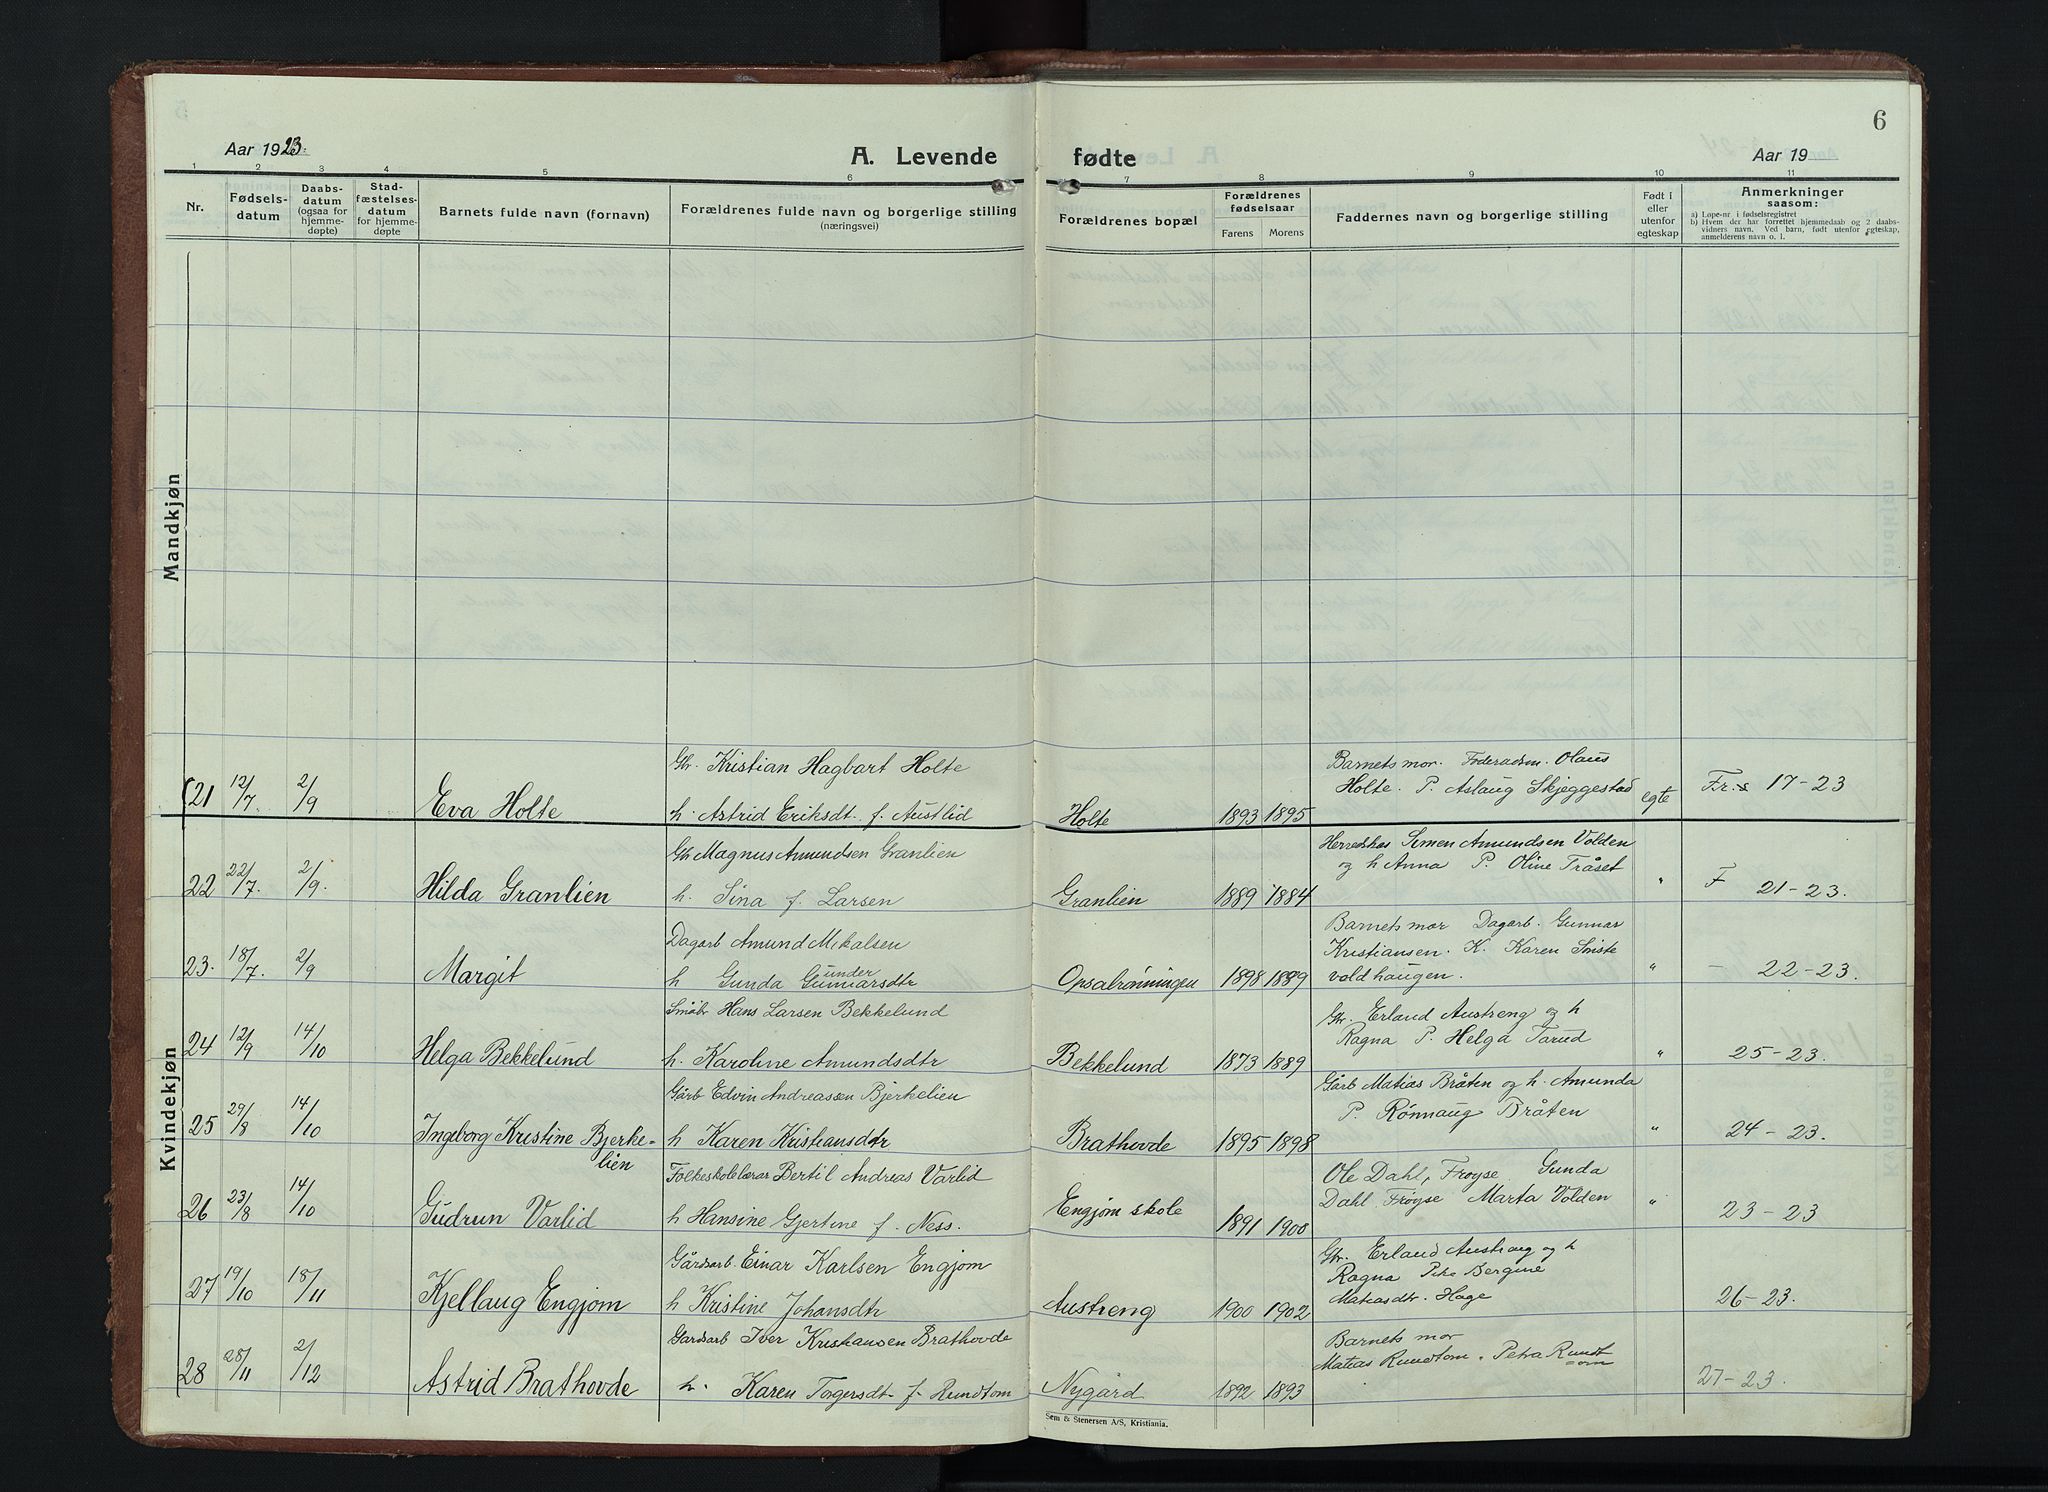 6
Aar 1923.
A. Levende fødte
Aar 19
1 2 3 4 5 6 7 8 9 10 11
Nr.
Fødsels-
datum
Daabs-
datum
(ogsaa for
hjemme-
døpte)
Stad-
fæstelses-
datum
for hjemme-
døpte
Barnets fulde navn (fornavn)
Forældrenes fulde navn og borgerlige stilling
(næringsvei)
Forældrenes bopæl
Forældrenes
fødselsaar
Farens Morens
Faddernes navn og borgerlige stilling
Født i
eller
utenfor
egteskap
Anmerkninger
saasom:
a) Løpe-nr. i fødselsregistret
b) Hvem der har forrettet hjemmedaab og 2 daabs-
vidners navn. Ved barn, født utenfor egteskap,
anmelderens navn o. l.
Mandkjøn
Kvindekjøn
21 12/7. 2/9 Eva Holte
Gbr. Kristian Hagbart Holte
h. Astrid Eriksdt. f. Austlid
Holte 1893 1895
Barnets mor. Føderaadsm. Olaus
Holte. P. Aslaug Skjeggestad
egte 17-23
22 22/7. 2/9. Hilda Granlien
Gbr Magnus Amundsen Granlien
h. Sina f. Larsen
Granlien 1889 1884
Simen Amundsen Volden
og h Anna P. Oline Tråset
" F 21-23.
23. 18/7. 2/9 Margit
Dagarb Amund Mikalsen
h Gunda Gunnarsdtr
Opsalrønningen 1898 1889
Barnets mor Dagarb. Gunnar
Kristiansen. K. Karen Smiste
voldhaugen.
" - 22-23.
24 12/9 14/10 Helga Bekkelund
Småbr Hans Larsen Bekkelund
h. Karoline Amundsdtr
Bekkelund 1873 1889
Gbr. Erland Austreng og h
Ragna P. Helga Tarud
" 25-23.
25 29/8 14/10 Ingeborg Kristine Bjerke-
lien
Gårb Edvin Andreassen Bjerkelien
h Karen Kristiansdtr
Brathovde 1895 1898
Gårb Matias Bråten og h. Amunda
P. Rønnaug Bråten
" 24-23.
26 23/8 14/10 Gudrun Varlid
Folkeskolelærar Bertil Andreas Varlid
h Hansine Gjertine f. Ness.
Engjom skole 1891 1900
Ole Dahl, Frøyse Gunda
Dahl Frøyse Marta Volden
" 23-23
27 19/10 18/11 Kjellaug Engjom
Gårdsarb. Einar Karlsen Engjom
h Kristine Johansdtr
Austreng 1900 1902
Gbr. Erland Austreng og h
Ragna Pike Bergine
Matiasdtr. Hage
26-23.
28 28/11 2/12 Astrid Brathovde
Gardsarb Iver Kristiansen Brathovde
h. Karen Torgersdt. f. Rundtom
Nygård 1892 1893
Barnets mor
Matias Rundtom. Petra Rundt
om
27-23.
Sem & Stenersen A/S, Kristiania.